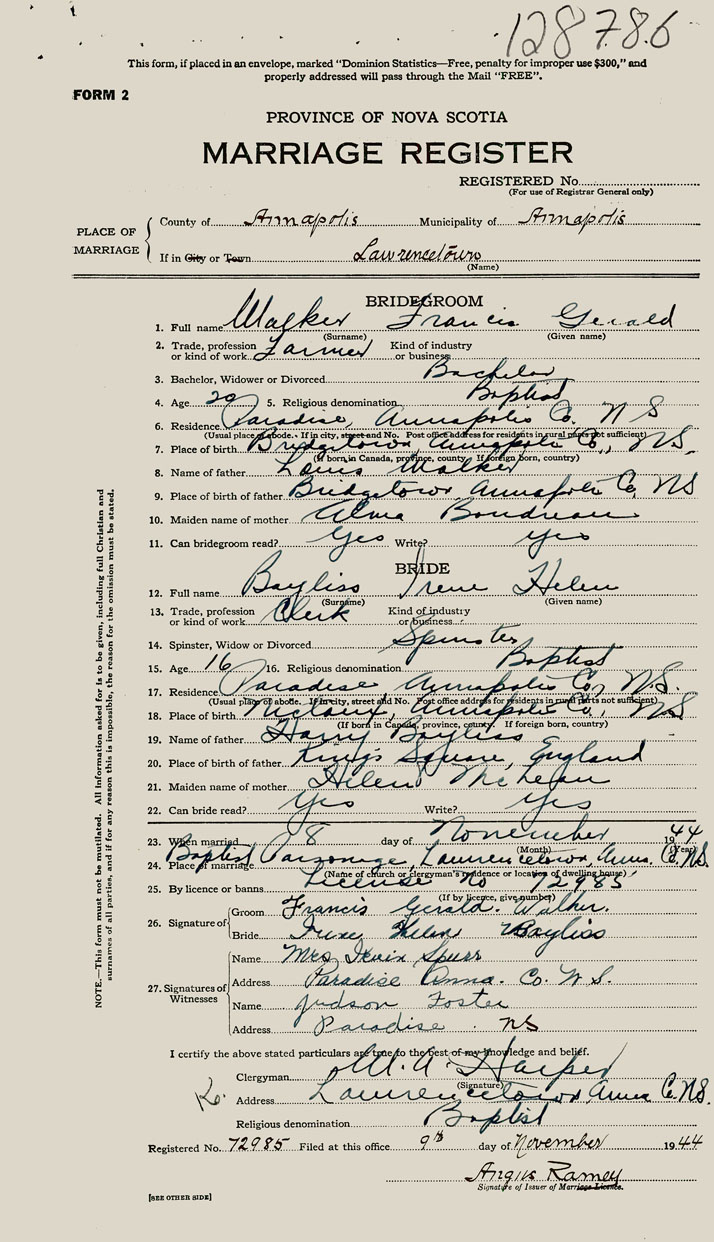 128786
This form, if placed in an envelope, marked "Dominion Statistics—Free, penalty for improper use $300," and
properly addressed will pass through the Mail "FREE".
FORM 2
PROVINCE OF NOVA SCOTIA
MARRIAGE REGISTER
REGISTERED No.
(For use of Registrar General only)
PLACE OF MARRIAGE
County of Annapolis Municipality of Annapolis
If in City or Town Lawrencetown
(Name)
BRIDEGROOM
1. Full name Walker Francis Gerald
(Surname) (Given name)
2. Trade, profession or kind of work Farmer Kind of industry or business
3. Bachelor, Widower or Divorced Bachelor
4. Age 20 5. Religious denomination Baptist
6. Residence Paradise, Annapolis Co. N S
(Usual place of abode. If in city, street and No. Post office address for residents in rural parts not sufficient)
7. Place of birth Bridgetown Annapolis Co., NS.
(If born in Canada, province, county. If foreign born, country)
8. Name of father Louis Walker
9. Place of birth of father Bridgetown Annapolis Co, NS
10. Maiden name of mother Alma Boudreau
11. Can bridegroom read? Yes Write? yes
BRIDE
12. Full name Bayliss Irene Helen
(Surname) (Given name)
13. Trade, profession or kind of work Clerk Kind of industry or business
14. Spinster, Widow or Divorced Spinster
15. Age 16 16. Religious denomination Baptist
17. Residence Paradise Annapolis Co, N.S.
(Usual place of abode. If in city, street and No. Post office address for residents in rural parts not sufficient)
18. Place of birth Nictaux, Annapolis Co., NS
(If born in Canada, province, county. If foreign born, country)
19. Name of father Harry Bayliss
20. Place of birth of father King's Square, England
21. Maiden name of mother Helen McLean
22. Can bride read? Yes Write? Yes
23. When married 8 day of November 1944
(Month) (Year)
24. Place of marriage Baptist Parsonage, Lawrencetown, Anna. Co. N.S.
(Name of church or clergyman's residence or location of dwelling house)
25. By licence or banns License No 72985
(If by licence, give number)
26. Signature of Groom Francis Gerald. Walker.
Bride Irene Helen Bayliss
27. Signatures of Witnesses
Name Mrs Irvin Spurr
Address Paradise Anna. Co. N.S.
Name Judson Foster
Address Paradise NS
I certify the above stated particulars are true to the best of my knowledge and belief.
Clergyman M. A. Harper
(Signature)
Address Lawrencetown, Anna Co. N.S.
Religious denomination Baptist
Registered No. 72985 Filed at this office 9th day of November 1944
Angus Ramey
Signature of Issuer of Marriage Licence.
[SEE OTHER SIDE]
NOTE.—This form must not be mutilated. All information asked for is to be given, including full Christian and
surnames of all parties, and if for any reason this is impossible, the reason for the omission must be stated.